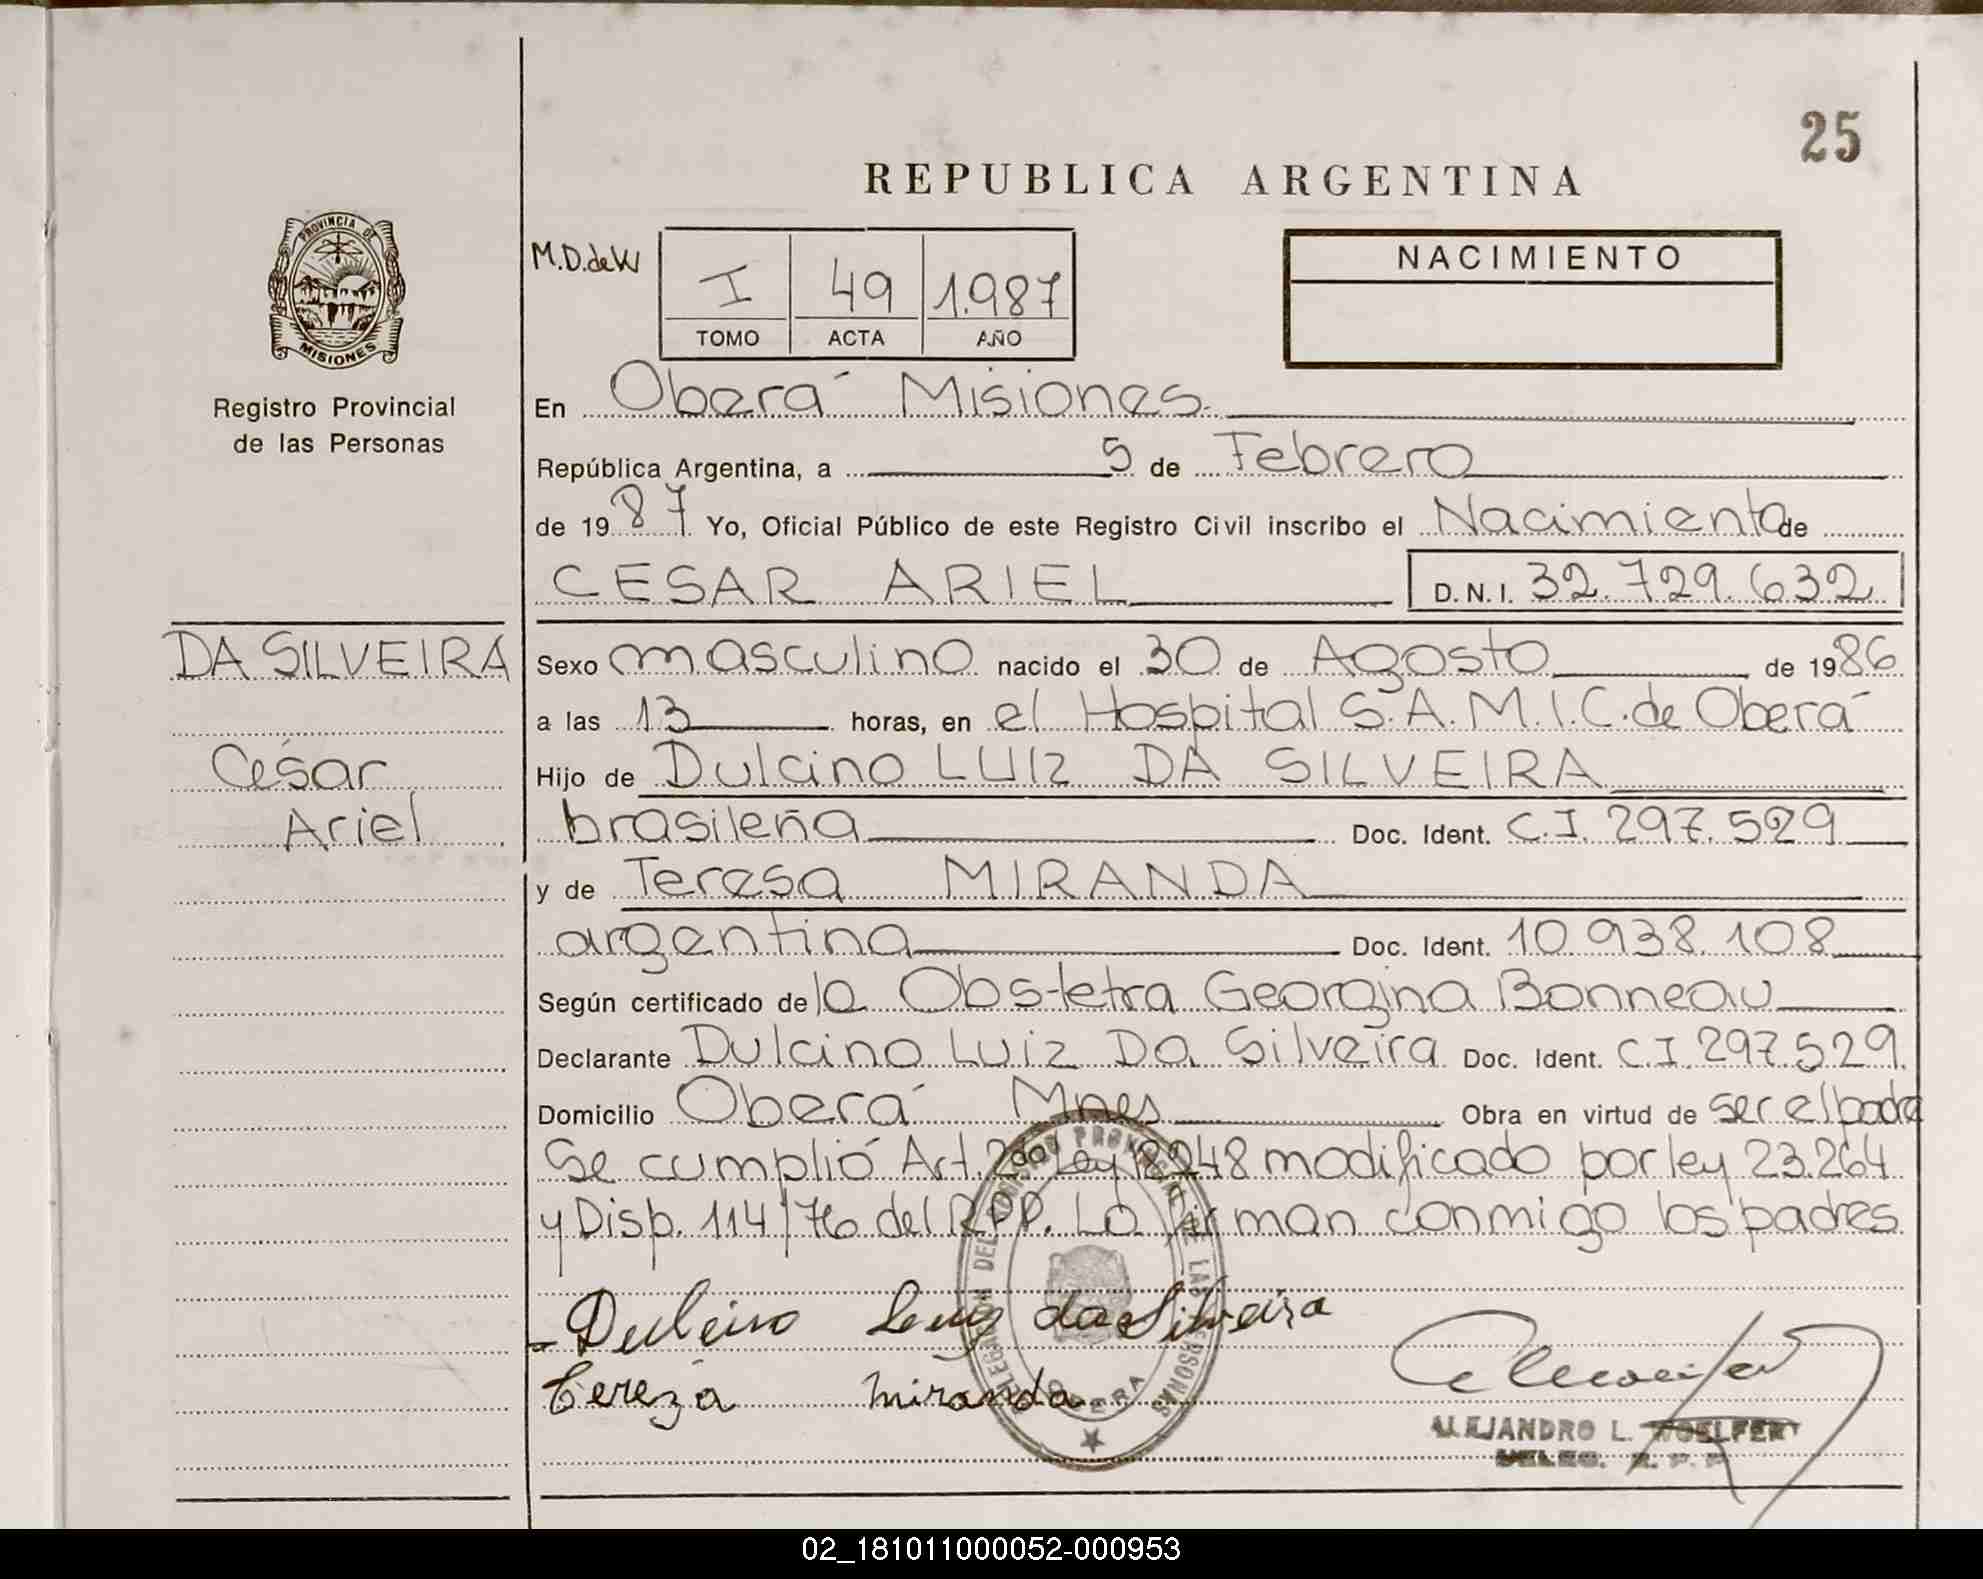 25
REPUBLICA ARGENTINA
PROVINCIA DE
MISIONES
Registro Provincial
de las Personas
M.D.deW
I 49 1.987
TOMO ACTA AÑO
NACIMIENTO
En Oberá Misiones.
República Argentina, a 5 de Febrero
de 1987 Yo, Oficial Público de este Registro Civil inscribo el Nacimiento de
CESAR ARIEL D.N.I. 32.729.632
DA SILVEIRA
César
Ariel
Sexo masculino nacido el 30 de Agosto de 1986
a las 13 horas, en el Hospital S.A.M.I.C. de Oberá
Hijo de Dulcino LUIZ DA SILVEIRA
brasileña Doc. Ident. C.I. 297.529
y de Teresa MIRANDA
argentina Doc. Ident. 10.938.108
Según certificado de la Obstetra Georgina Bonneau
Declarante Dulcino Luiz Da Silveira Doc. Ident. C.I. 297.529.
Domicilio Oberá Mnes Obra en virtud de ser el padre
Se cumplió Art. 2do Ley 18248 modificado por ley 23.264
y Disp. 114/76 del RPP. Lo firman conmigo los padres
Dulcino Luiz da Silveira
Tereza miranda
DELEGACION DEL REGISTRO PROVINCIAL DE LAS PERSONAS
OBERA
ALEJANDRO L. WOELFERT
DELEG. R. P. P.
02_181011000052-000953